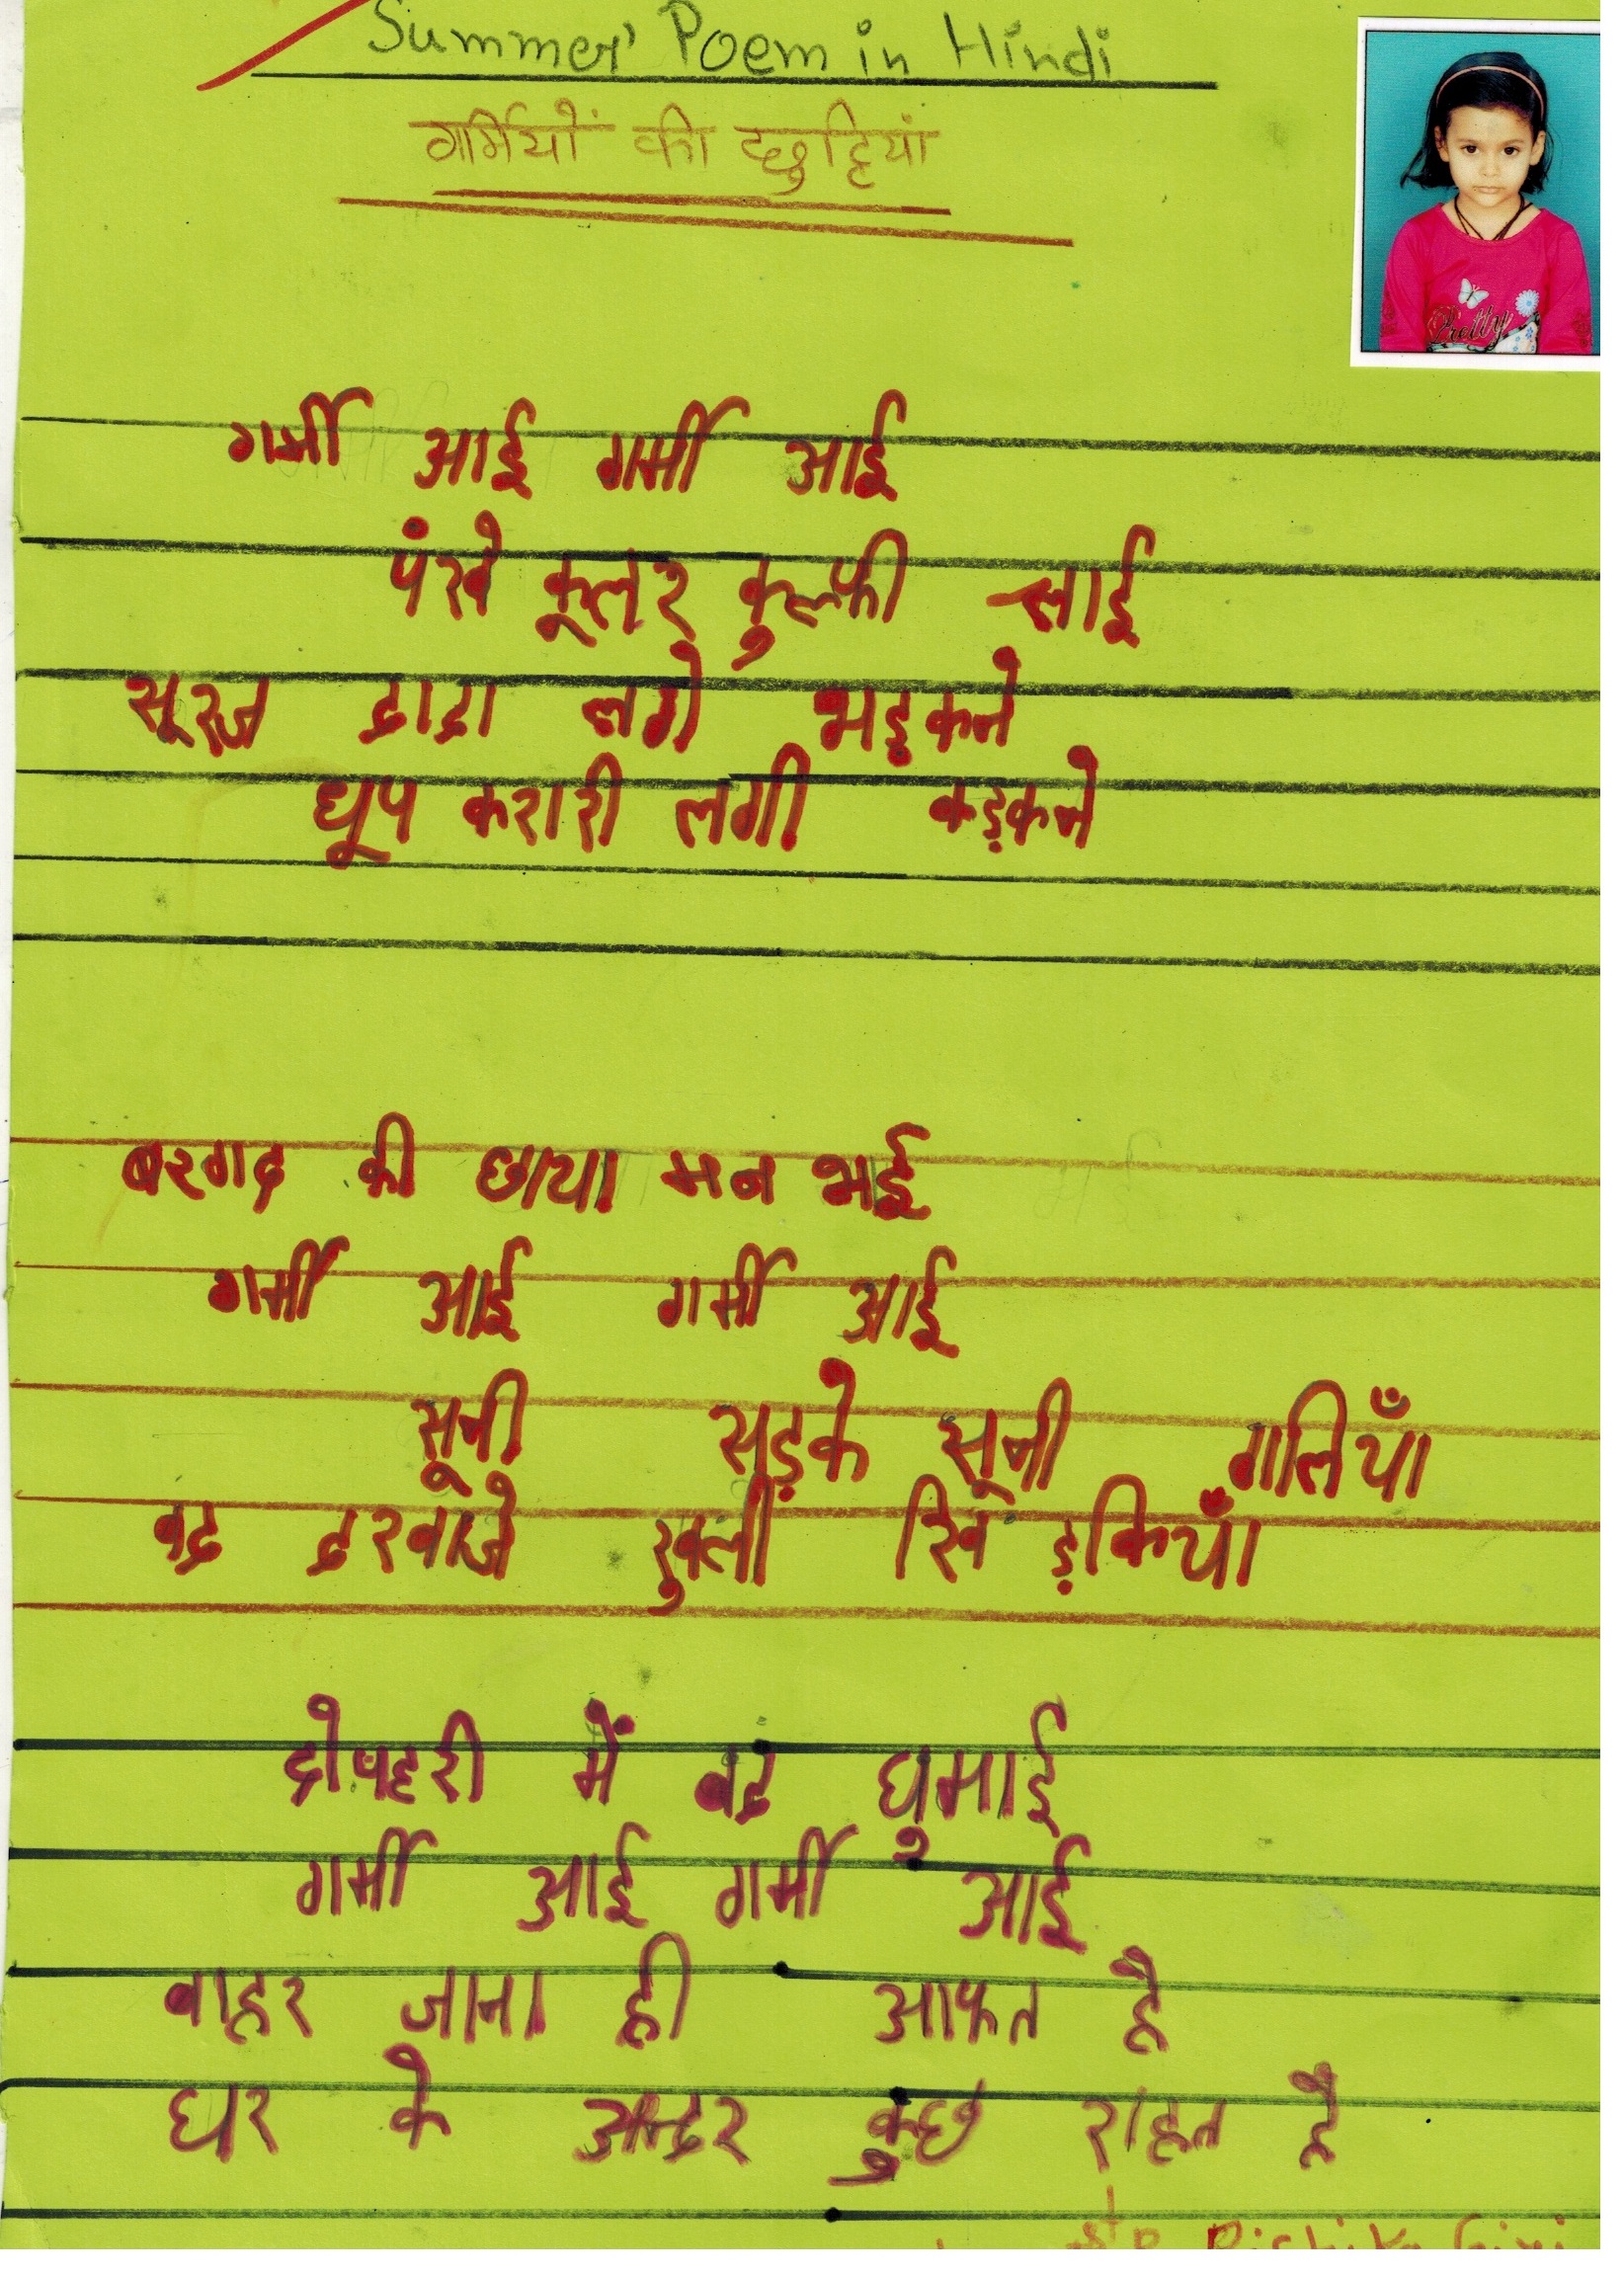 Summer Poem in Hindi
गर्मियों की छुट्टियां
Pretty
गर्मी आई गर्मी आई
पंखे कूलर कुल्फी लाई
सूरज दादा लगे भड़कने
धूप करारी लगी कड़कने
बरगद की छाया मन भाई
गर्मी आई गर्मी आई
सूनी सड़के सूनी गलियाँ
बद दरवाजे खुली खिड़कियाँ
दोपहरी में बद घुमाई
गर्मी आई गर्मी आई
बाहर जाना ही आफत है
घर के अन्दर कुछ राहत है